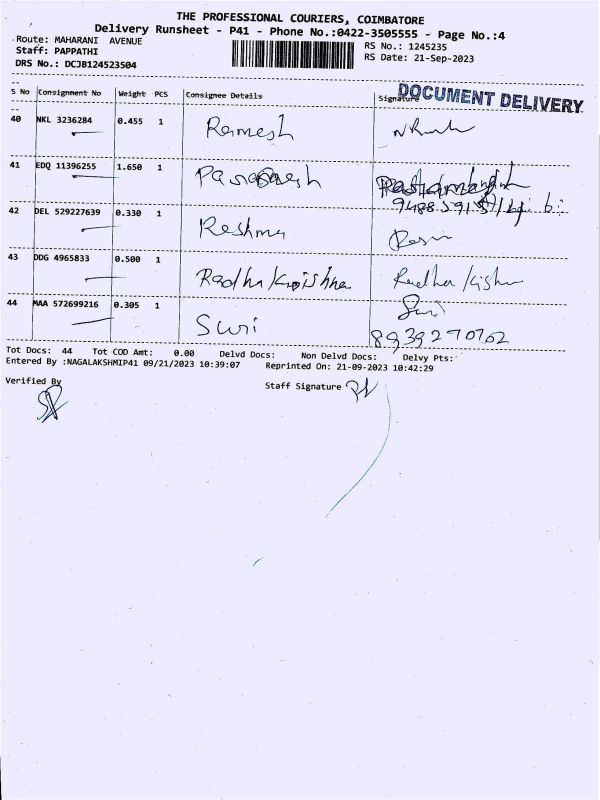 THE PROFESSIONAL COURIERS, COIMBATORE
Delivery Runsheet - P41 - Phone No.:0422-3505555 - Page No.:4
Route: MAHARANI AVENUE
RS No.: 1245235
Staff: PAPPATHI
RS Date: 21-Sep-2023
DRS No.: DCJB124523504
DOCUMENT DELIVERY
S No Consignment No Weight PCS Consignee Details Signature
40 NKL 3236284 0.455 1 Ramesh
41 EDQ 11396255 1.650 1
42 DEL 529227639 0.330 1 Reshma
43 DDG 4965833 0.500 1 Radha Krishna Radha
44 MAA 572699216 0.305 1 Suri Suri
8939270702
Tot Docs: 44 Tot COD Amt: 0.00 Delvd Docs: Non Delvd Docs: Delvy Pts:
Entered By :NAGALAKSHMIP41 09/21/2023 10:39:07 Reprinted On: 21-09-2023 10:42:29
Verified By
Staff Signature